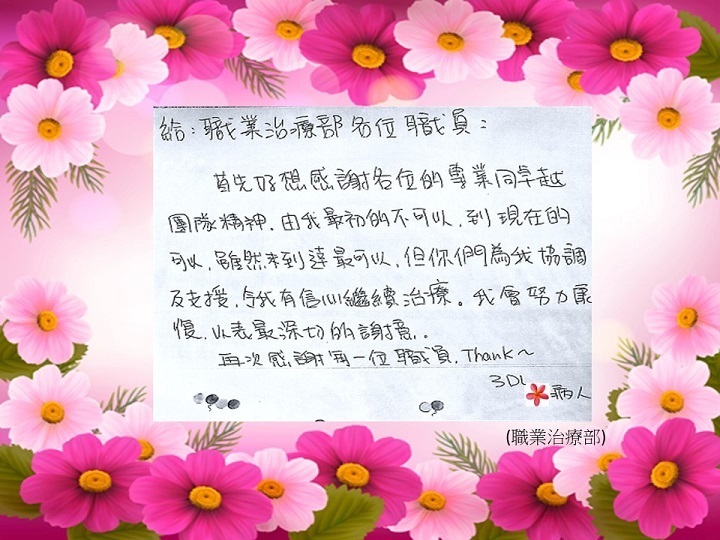 給:職業治療部各位職員:
首先好想感謝各位的專業同卓越
團隊精神.由我最初的不可以,到現在的
可以,雖然未到達最可以,但你們為我協調
及支援,令我有信心繼續治療。我會努力康
復,以表最深切的謝意。
再次感謝每一位職員.Thank~
3DL 病人
(職業治療部)